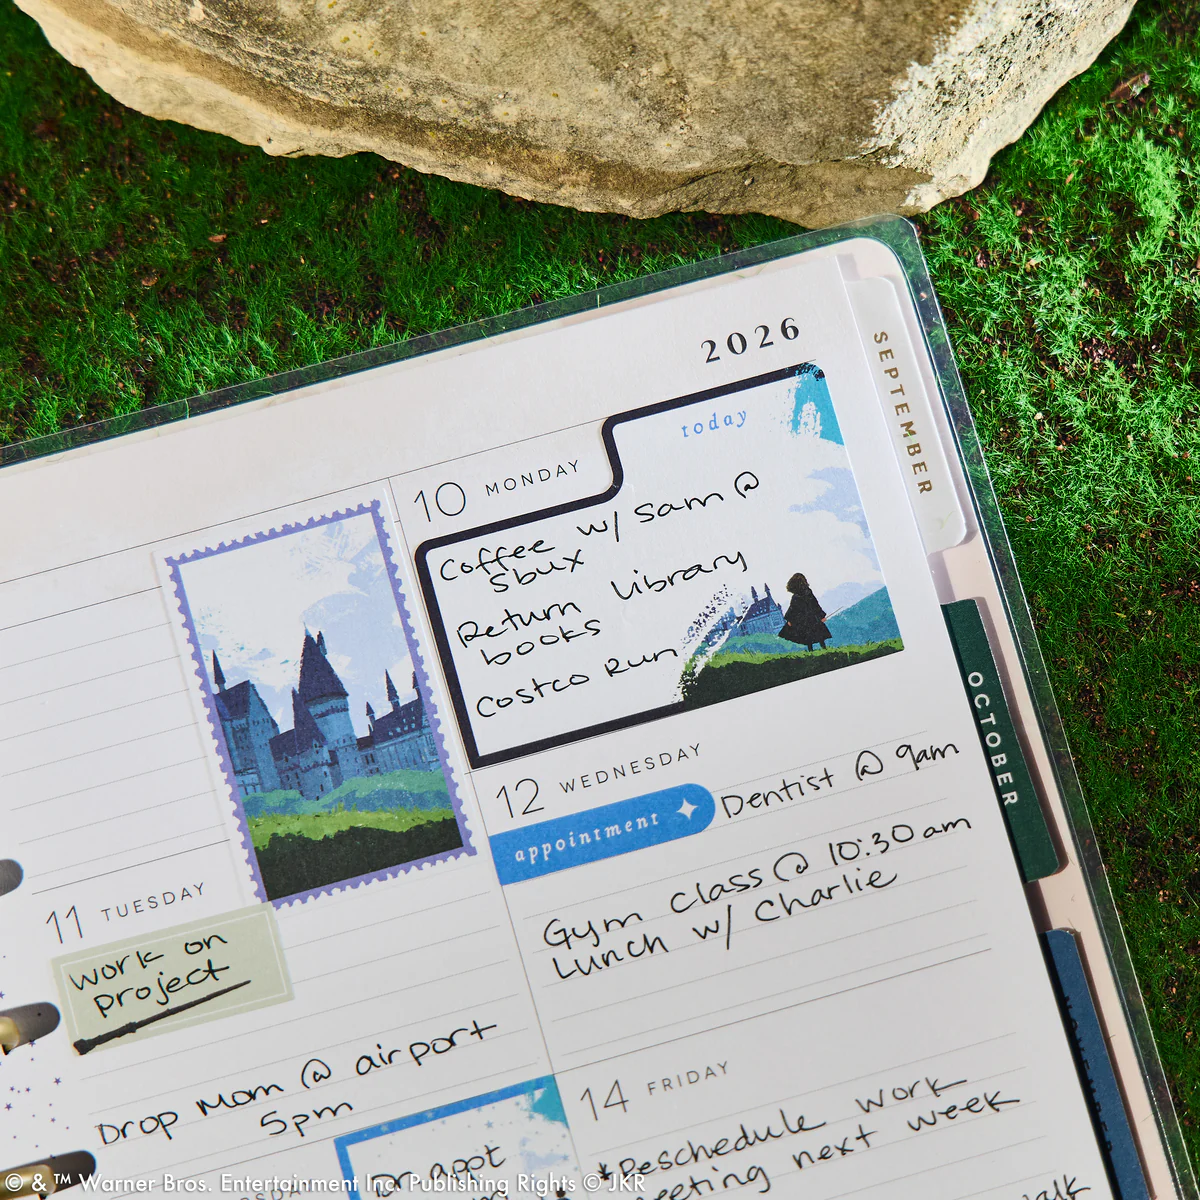 2026
SEPTEMBER
today
10 MONDAY
Coffee w/ Sam @
Sbux
Return library
books
Costco Run
OCTOBER
12 WEDNESDAY
appointment
Dentist @ 9am
Gym class @ 10:30am
Lunch w/ Charlie
11 TUESDAY
work on
project
Drop Mom @ airport
5pm
14 FRIDAY
*Reschedule work
meeting next week
NOVEMBER
Dr appt
© & ™ Warner Bros. Entertainment Inc. Publishing Rights © JKR